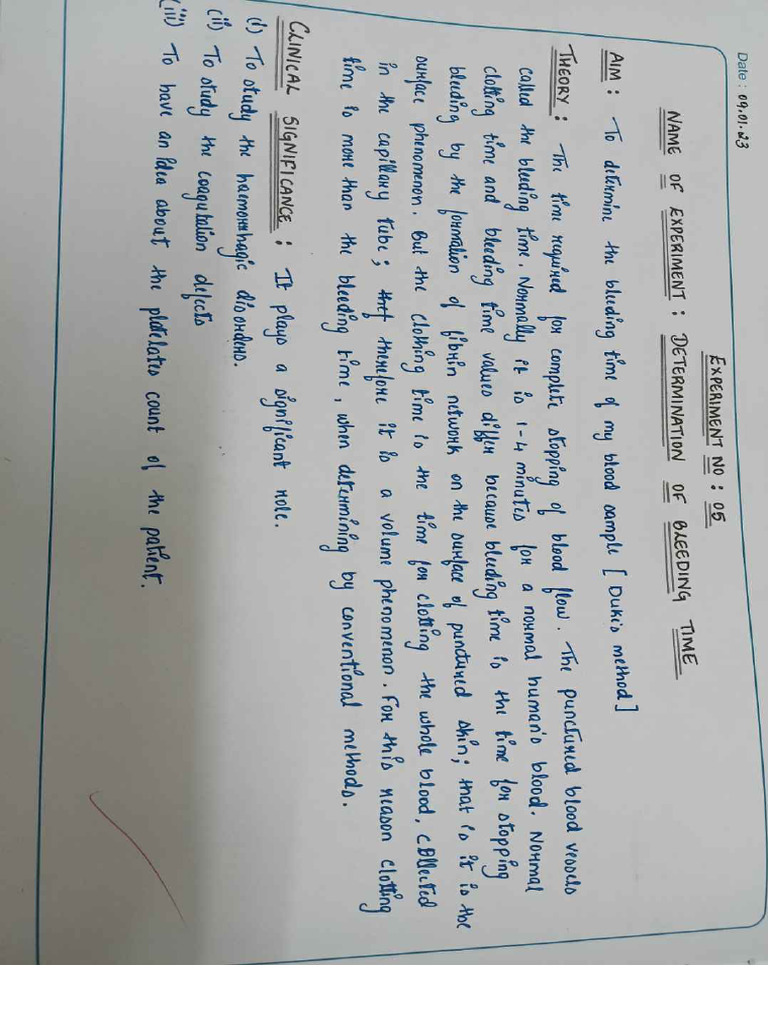 Date: 09.01.23
EXPERIMENT NO: 05
NAME OF EXPERIMENT: DETERMINATION OF BLEEDING TIME
AIM: To determine the bleeding time of my blood sample [Duke's method]
THEORY: The time required for complete stopping of blood flow. The punctured blood vessels
called the bleeding time. Normally it is 1-4 minutes for a normal human's blood. Normal
clotting time and bleeding time values differ because bleeding time is the time for stopping
bleeding by the formation of fibrin network on the surface of punctured skin; that is it is the
surface phenomenon. But the clothing time is the time for clotting the whole blood, collected
in the capillary tube; therefore it is a volume phenomenon. For this reason clotting
time is more than the bleeding time, when determining by conventional methods.
CLINICAL SIGNIFICANCE: It plays a significant role.
(i) To study the haemorrhagic disorders.
(ii) To study the coagulation defects
(iii) To have an idea about the platelates count of the patient.